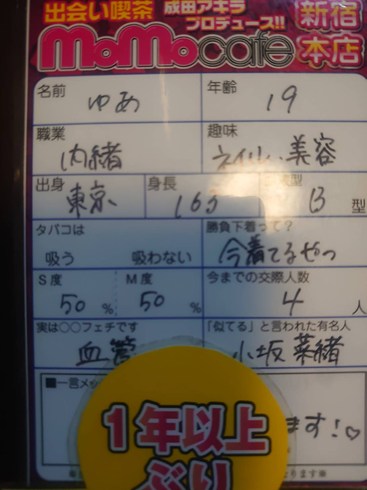 出会い喫茶 成田アキラ プロデュース!! 新宿本店
MoMocafe
名前 ゆめ 年齢 19
職業 内緒 趣味 ネイル、美容
出身 東京 身長 165 型 B 型
タバコは 吸う 吸わない 勝負下着って? 今着てるやつ
S度 50% M度 50% 今までの交際人数 4人
実は○○フェチです 血管 「似てる」と言われた有名人 小坂菜緒
■一言メッ
ます!♡
1年以上
ぶり
ります※